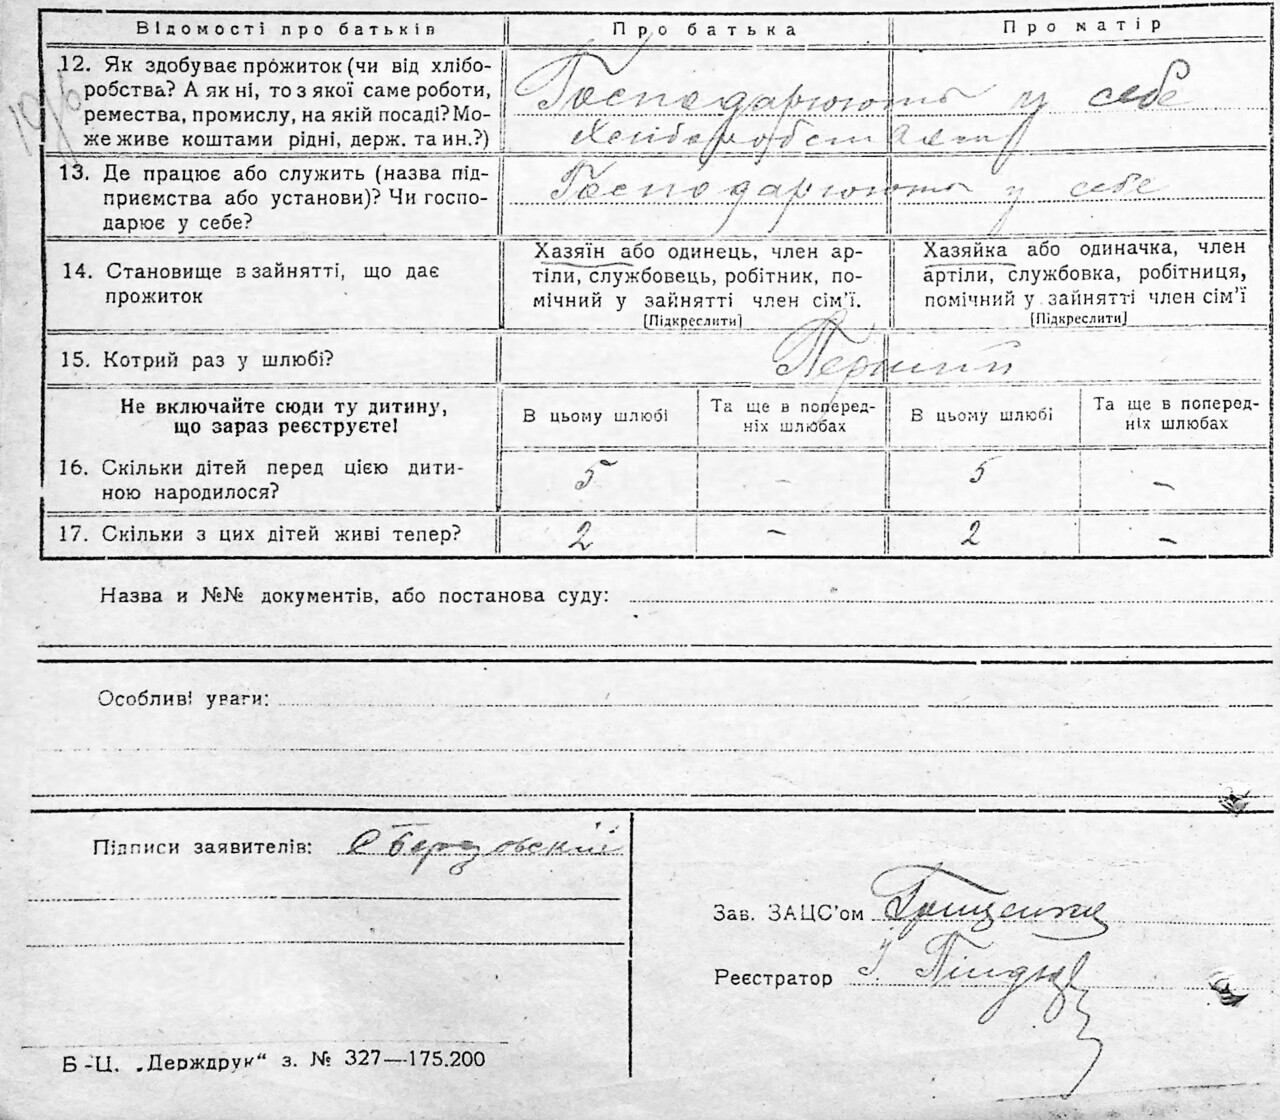 Відомості про батьків Про батька Про матір
12. Як здобуває прожиток (чи від хлібо-
робства? А як ні, то з якої саме роботи,
ремества, промислу, на якій посаді? Мо-
же живе коштами рідні, держ. та ин.?)
Господарюють у себе
13. Де працює або служить (назва під-
приємства або установи)? Чи госпо-
дарює у себе?
Господарюють у себе
14. Становище в зайнятті, що дає
прожиток
Хазяїн або одинець, член ар-
тіли, службовець, робітник, по-
мічний у зайнятті член сім’ї.
[Підкреслити]
Хазяйка або одиначка, член
артіли, службовка, робітниця,
помічний у зайнятті член сім’ї
[Підкреслити]
15. Котрий раз у шлюбі? Перший
Не включайте сюди ту дитину,
що зараз реєструєте!
В цьому шлюбі
Та ще в поперед-
ніх шлюбах
В цьому шлюбі
Та ще в поперед-
ніх шлюбах
16. Скільки дітей перед цією дити-
ною народилося?
5 - 5 -
17. Скільки з цих дітей живі тепер? 2 - 2 -
Назва и №№ документів, або постанова суду:
Особливі уваги:
Підписи заявителів:
Зав. ЗАЦС’ом Грищенко
Реєстратор
Б-Ц. „Держдрук“ з. № 327—175.200